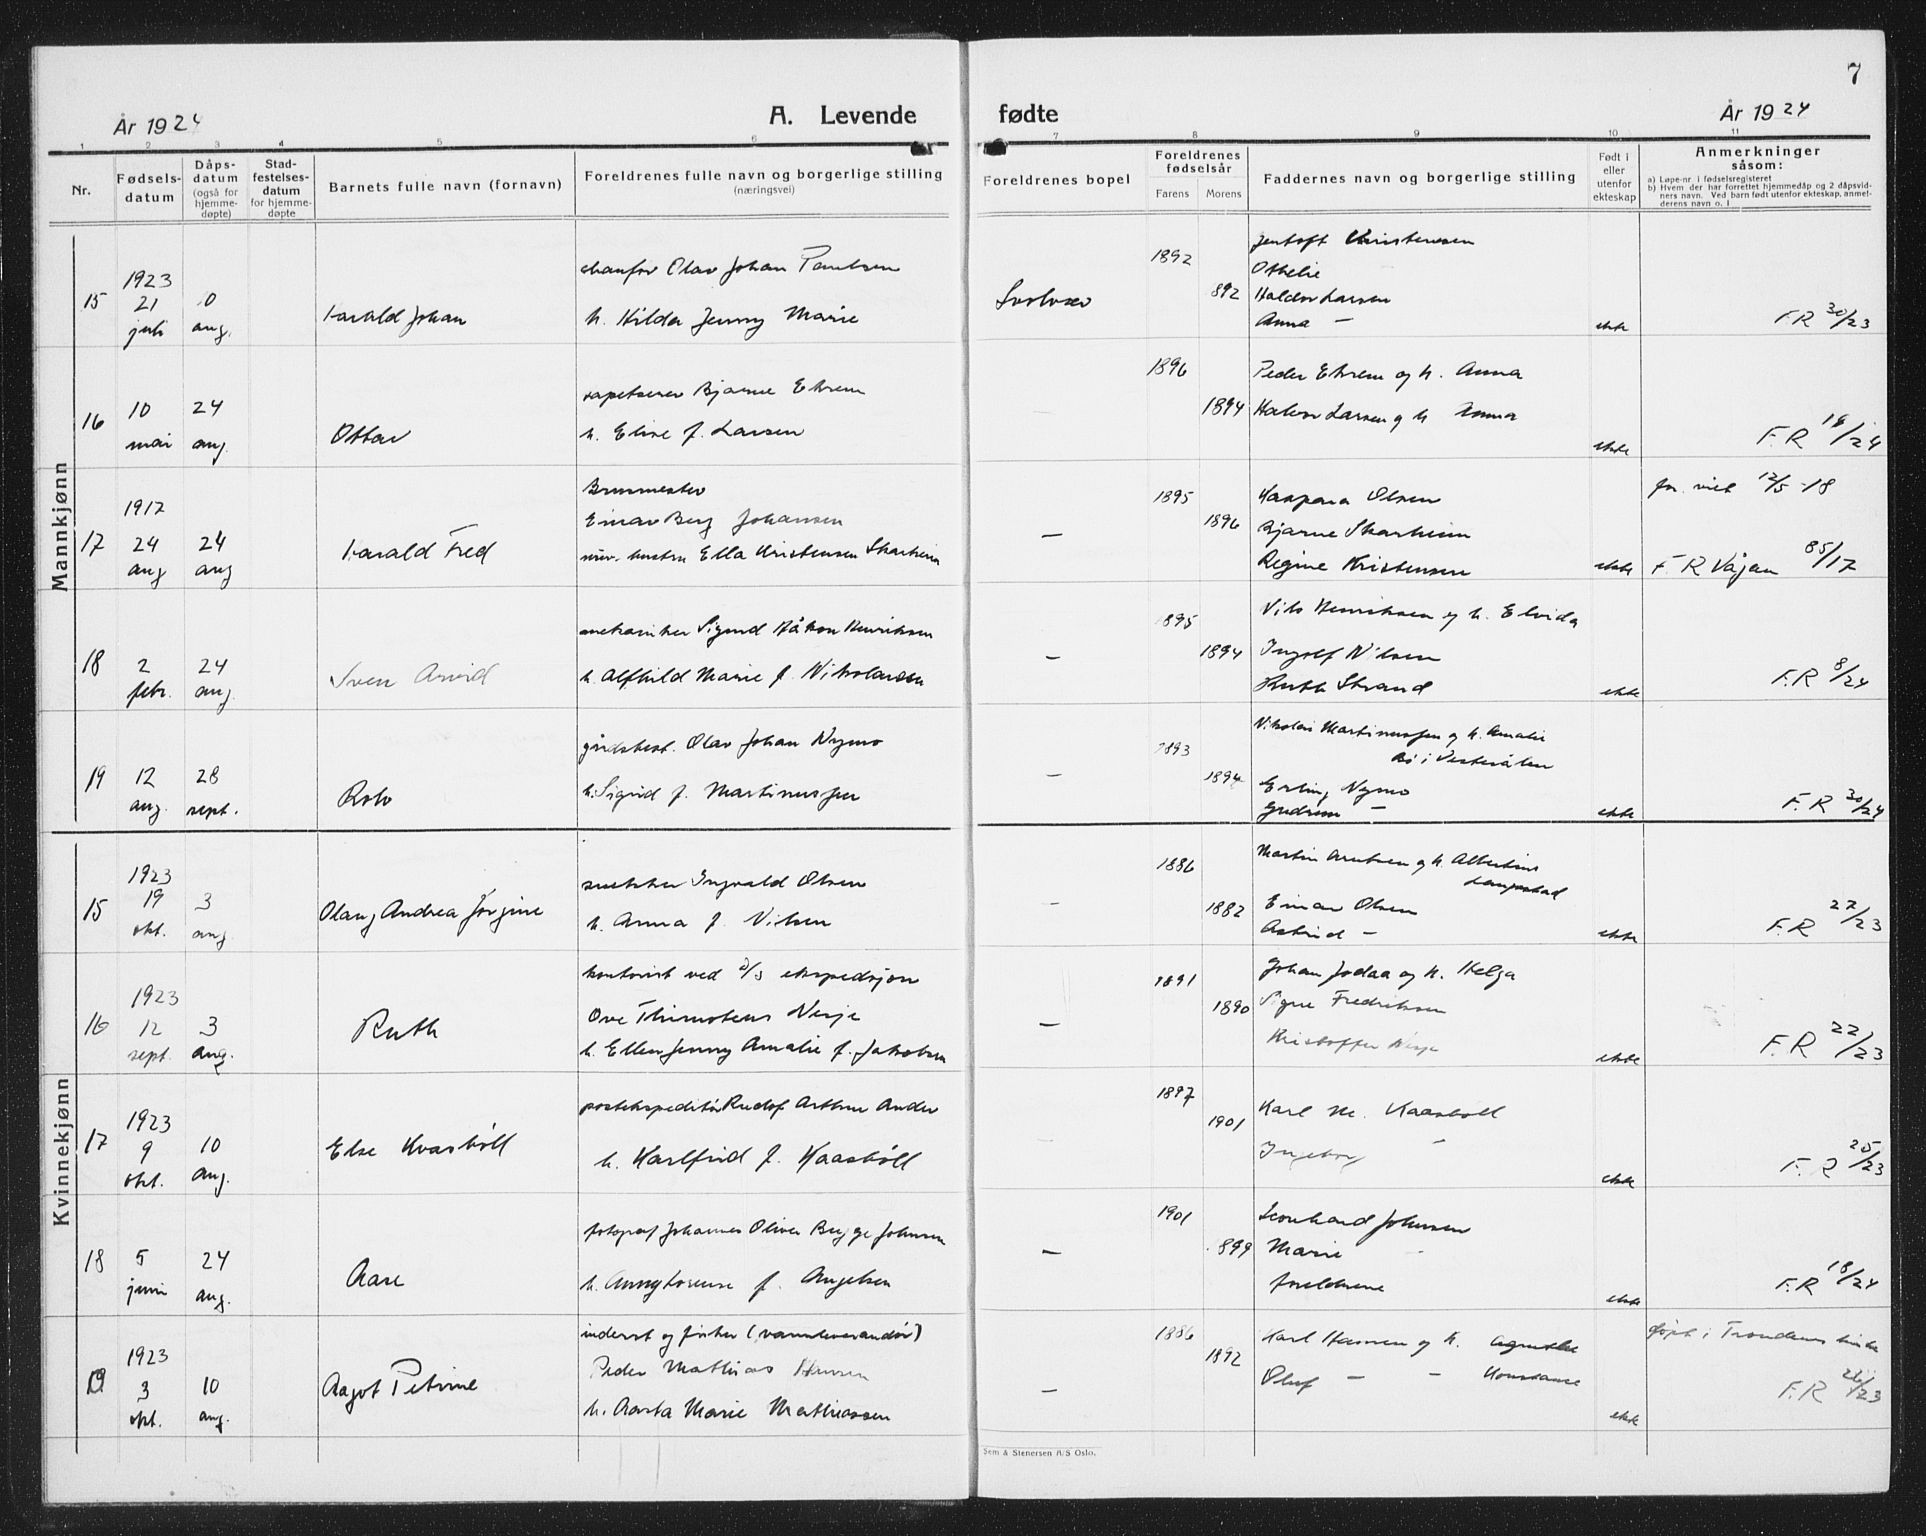 7
År 1924
A. Levende
fødte
År 1924
1 2 3 4 5 6 7 8 9 10 11
Nr.
Fødsels-
datum
Dåps-
datum
(også for
hjemme-
døpte)
Stad-
festelses-
datum
for hjemme-
døpte
Barnets fulle navn (fornavn)
Foreldrenes fulle navn og borgerlige stilling
(næringsvei)
Foreldrenes bopel
Foreldrenes
fødselsår
Farens
Morens
Faddernes navn og borgerlige stilling
Født i
eller
utenfor
ekteskap
Anmerkninger
såsom:
a) Løpe-nr. i fødselsregisteret
b) Hvem der har forrettet hjemmedåp og 2 dåpsvid-
ners navn. Ved barn født utenfor ekteskap, anmel-
derens navn o. l
Mannkjønn
15
1923
21
juli
10
aug.
Harald Johan
chaufør Olav Johan Paulsen
h. Hilda Jenny Marie
Svolvær
1892
892
Jentoft Kristensen
Othelie
Haldor Larsen
Anna —
ekte
F.R 30/23
16
10
mai
24
aug.
Ottar
tapetserer Bjarne Ekrem
h. Elise f. Larsen
1896
1894
Peder Ekrem og h. Anna
Halvor Larsen og h Anna
ekte
F.R 18/24
17
1917
24
aug
24
aug
Harald Fred
Brunmester
Einar Berg Johansen
nuv. hustru Ella Kristensen Skarheim
—
1895
1896
Kaspara Olsen
Bjarne Skarheim
Regine Kristensen
ekte
for. viet 12/5-18
F R Vågan 85/17
18
2
febr.
24
aug.
Sven Arvid
mekaniker Sigurd Håkon Henriksen
h. Alfhild Marie f. Nikolaisen
—
1895
1894
Nils Henriksen og h. Elvida
Ingolf Nilsen
Ruth Strand
ekte
F.R 8/24
19
12
aug.
28
sept.
Rolv
gårdsbest. Olav Johan Nymo
h. Sigrid f. Martinussen
—
1893
1894
Nikolai Martinussen og h. Amalie
Bø i Vesterålen
Erling Nymo
Gudrun —
ekte
F.R 30/24
Kvinnekjønn
15
1923
19
okt.
3
aug.
Olaug Andrea Jørgine
snekker Ingvald Olsen
h. Anna f. Nilsen
—
1886
1882
Martin Arntsen og h Albertine
Einar Olsen
Astrid —
ekte
F.R 27/23
16
1923
12
sept.
3
aug.
Ruth
kontorist ved D/S ekspedisjon
Ove Thimoteus Nesje
h. Ellen Jenny Amalie f. Jakobsen
—
1891
1890
Johan Jodaa og h. Helga
Signe Fredriksen
Kristoffer Nesje
ekte
F.R 22/23
17
1923
9
okt.
10
aug.
Else Kvasböll
postekspeditør Rudolf Arthur Ander
h. Karlfrid f. Kaasböll
1897
1901
Karl M. Kaasböll
Ingeborg —
ekte
F.R 25/23
18
5
juni
24
aug.
Aase
fotograf Johannes Oliver Bugge Johnsen
h. Anny Lovense f. Angelsen
—
1901
1899
Leonhard Johnsen
Marie —
foreldrene
ekte
F.R 18/24
19
1923
3
okt.
10
aug.
Aagot Petrine
inderst og fisker (vannleverandør)
Peder Mathias Hansen
h. Aasta Marie Mathiassen
—
1886
1892
Karl Hansen og h. Agnethe
Oluf — — Konstanse
ekte
døpt i Trondenes kirke
F.R 26/23
Sem & Stenersen A/S Oslo.